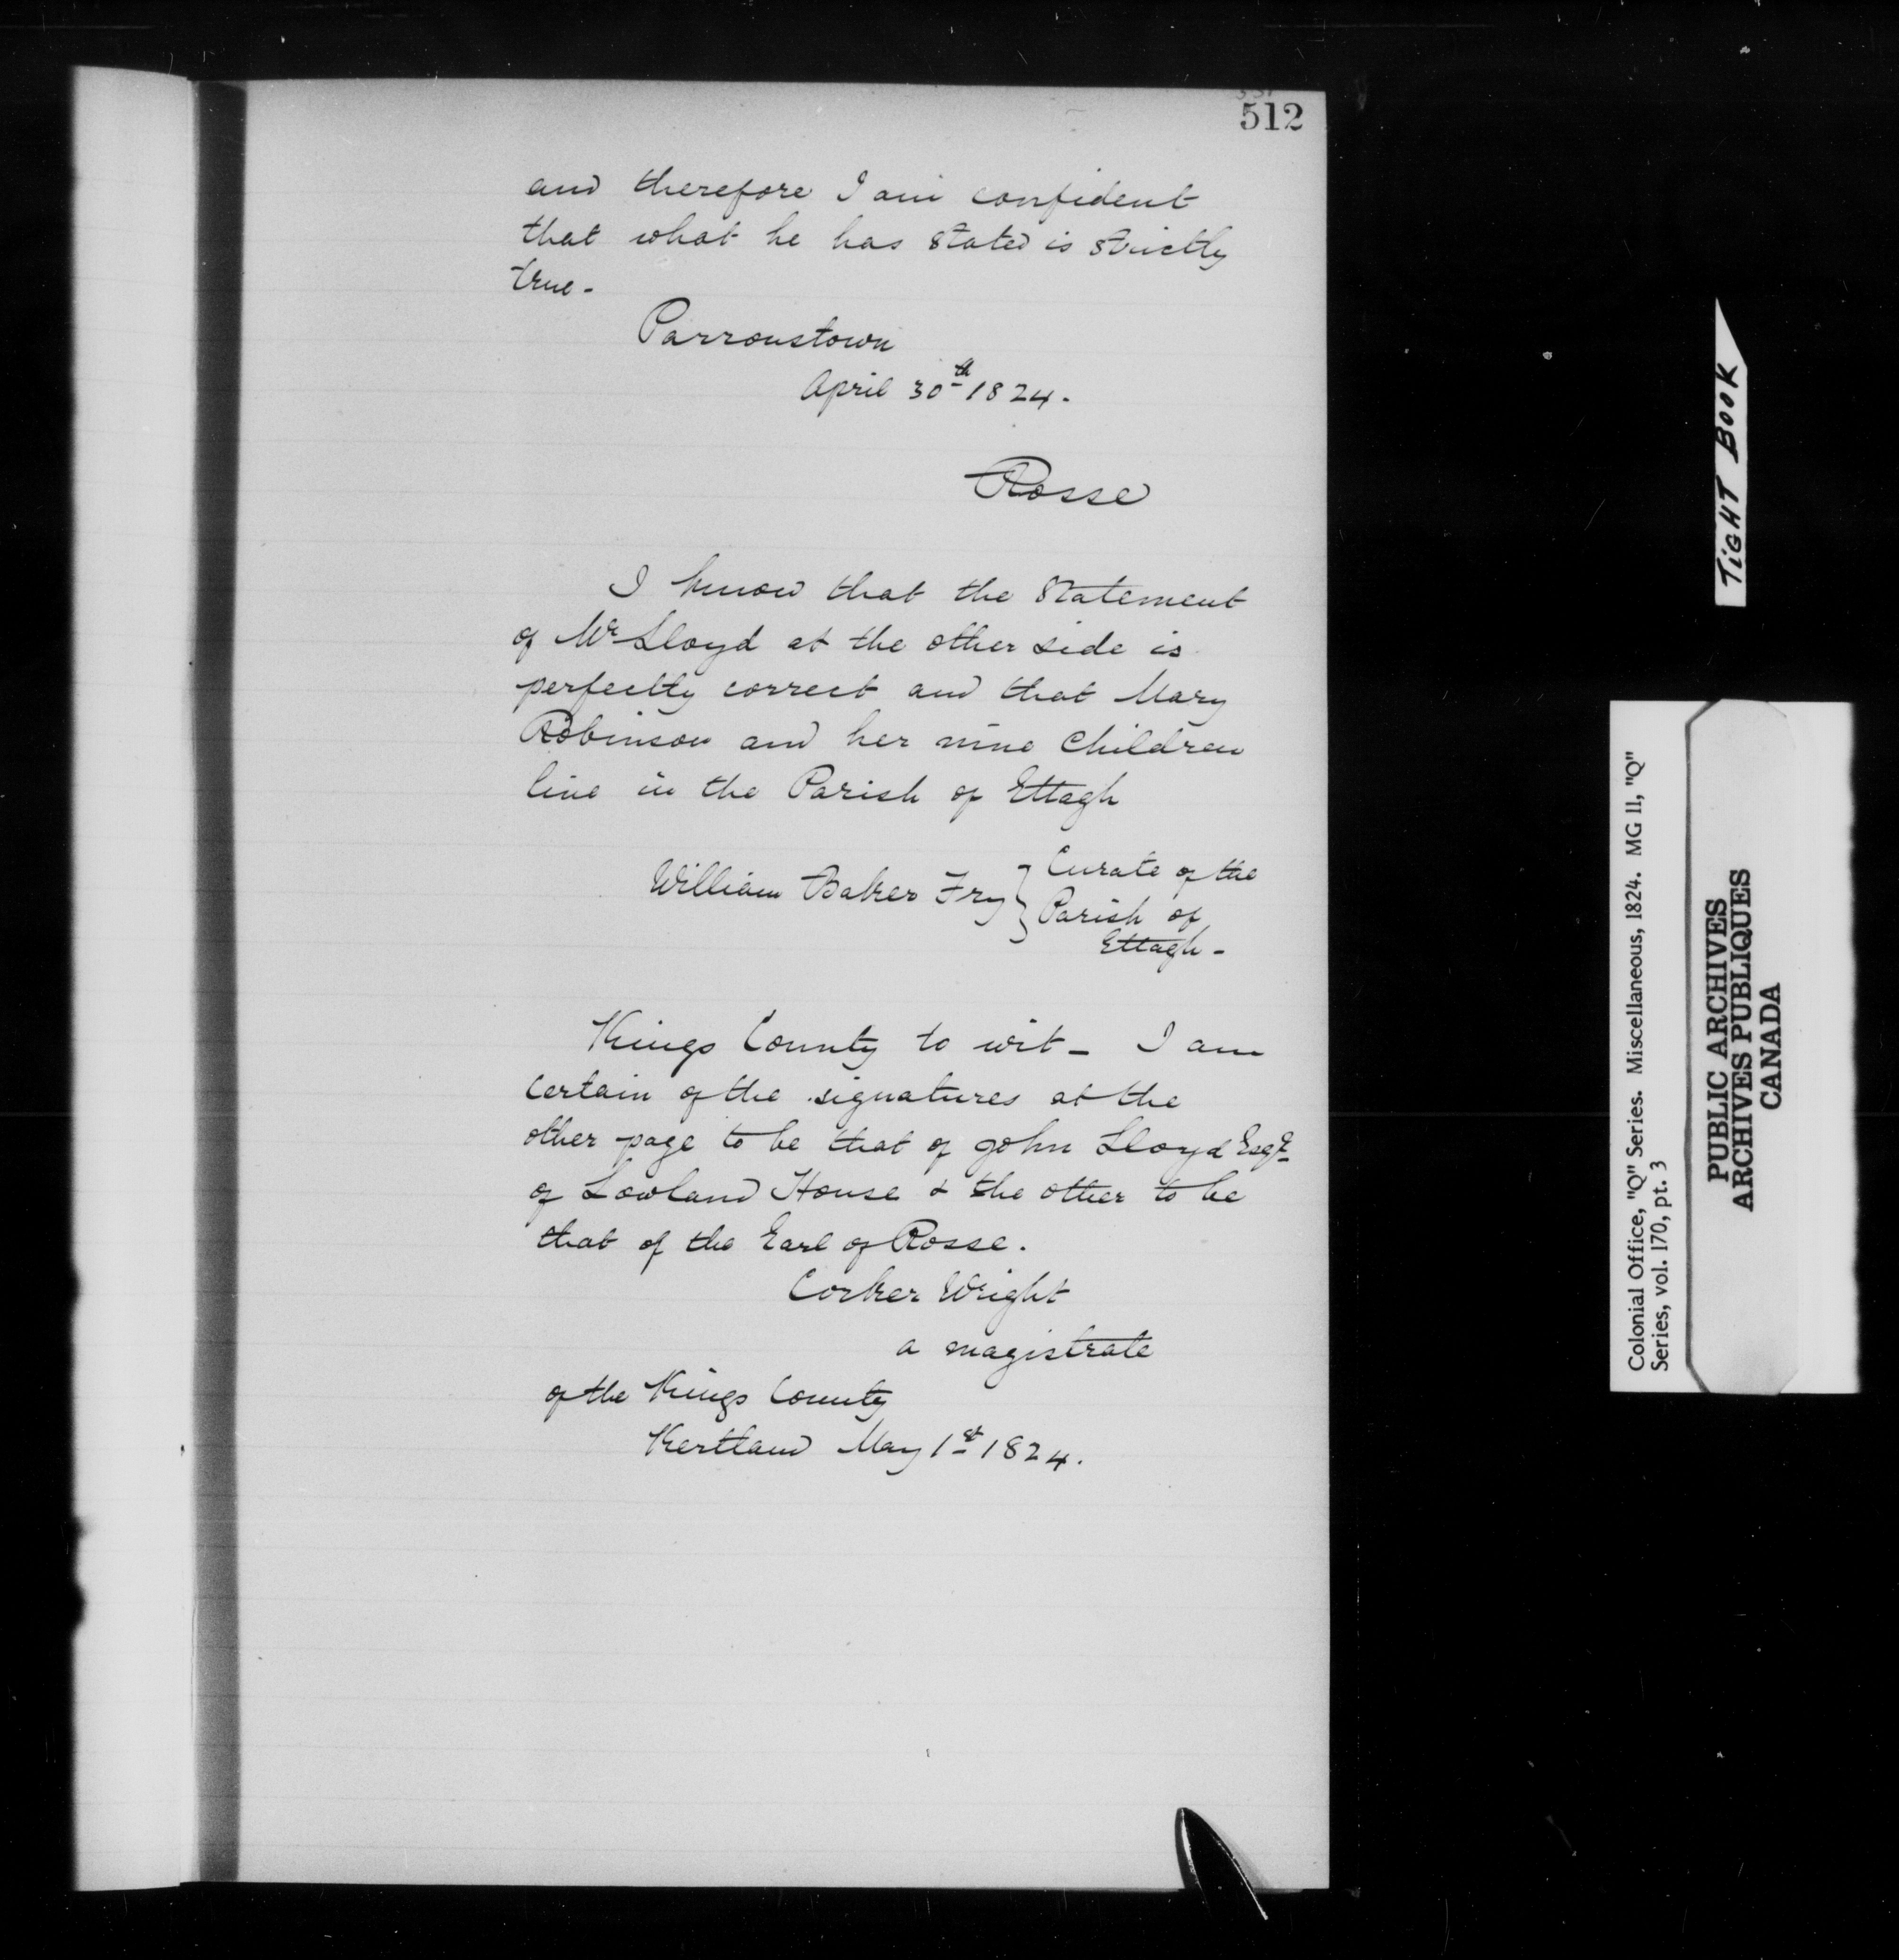 512
and therefore I am confident
that what he has stated is strictly
true.
Parronstown
April 30th 1824.
Rosse
I know that the statement
of Mr Lloyd at the other side is
perfectly correct and that Mary
Robinson and her nine children
live in the Parish of Ettagh
William Baker Fry } Curate of the
Parish of
Ettagh -
Kings County to wit - I am
certain of the signatures at the
other page to be that of John Lloyd Esqr
of Lowland House & the other to be
that of the Earl of Rosse.
Corker Wright
a magistrate
of the Kings County
Kertland May 1st 1824.
TIGHT BOOK
Colonial Office, "Q" Series. Miscellaneous, 1824. MG 11, "Q"
Series, vol. 170, pt. 3
PUBLIC ARCHIVES
ARCHIVES PUBLIQUES
CANADA